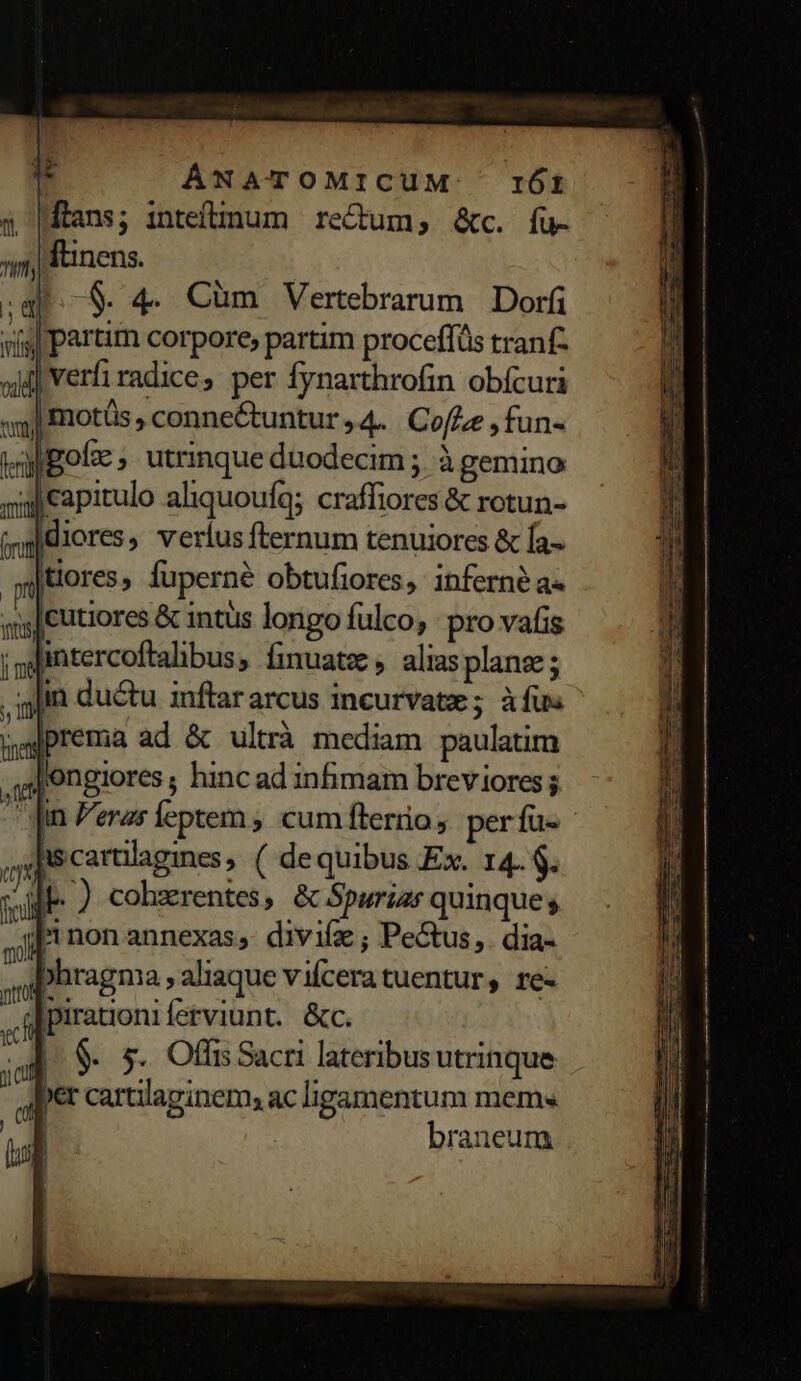 ANATOMICUM 161
ſtans; inteſtinum rectum, &c. ſu-
ſtinens.
§. 4. Cùm Vertebrarum Dorſi
partim corpore, partim proceſſûs tranſ-
verſi radice, per ſynarthroſin obſcuri
motûs, connectuntur, 4. Coſtæ, fun-
goſæ, utrinque duodecim; à gemino
capitulo aliquouſq; craſſiores & rotun-
diores, verſus ſternum tenuiores & la-
tiores, ſupernè obtuſiores, infernè a-
cutiores & intùs longo ſulco, pro vaſis
intercoſtalibus, ſinuatæ, alias planæ;
in ductu inſtar arcus incurvatæ; à ſu-
prema ad & ultrà mediam paulatim
longiores; hinc ad infimam breviores;
in Veras ſeptem, cum ſterno, per ſu-
as cartilagines, ( de quibus Ex. 14. §.
) cohærentes, & Spurias quinque,
ei non annexas, diviſæ; Pectus, dia-
phragma, aliaque viſcera tuentur, re-
ſpirationi ſerviunt. &c.
§. 5. Oſſis Sacri lateribus utrinque
per cartilaginem, ac ligamentum mem-
braneum